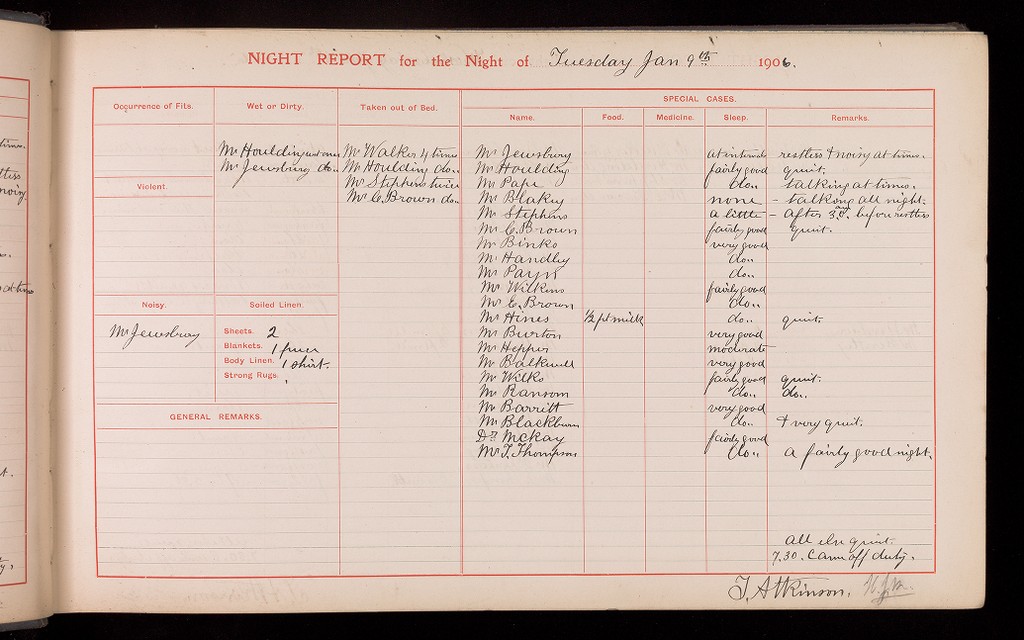 NIGHT REPORT for the Night of Tuesday Jan 9th 1906.
Occurrence of Fits.
Wet or Dirty.
Taken out of Bed.
SPECIAL CASES.
Name. Food. Medicine. Sleep. Remarks.
Mr Houlding wet once
Mr Jewsbury do..
Mr Walker 4 times
Mr Houlding do..
Mr Stephens twice
Mr C. Brown do..
Violent.
Noisy.
Mr Jewsbury
Soiled Linen.
Sheets. 2
Blankets. 1
Body Linen. 1 shirt.
Strong Rugs.
GENERAL REMARKS.
Mr Jewsbury at intervals restless & noisy at times.
Mr Houlding fairly good quit.
Mr Pape do.. talking at times.
Mr Blakey none - talking all night.
Mr Stephens a little - after 3.0. before restless
Mr C. Brown fairly good quit.
Mr Binko very good
Mr Handley do..
Mr Payn do..
Mr Wilkins fairly good
Mr E. Brown do..
Mr Hines 1/2 pt milk do.. quit.
Mr Burton very good
Mr Hepper moderate
Mr Balkwill very good
Mr Wilks fairly good quit.
Mr Ransom do.. do..
Mr Barritt very good
Mr Blackburn do.. & very quit.
Dr McKay fairly good
Mr T. Thompson do.. a fairly good night.
all else quit.
7.30. Came off duty.
T. Atkinson.